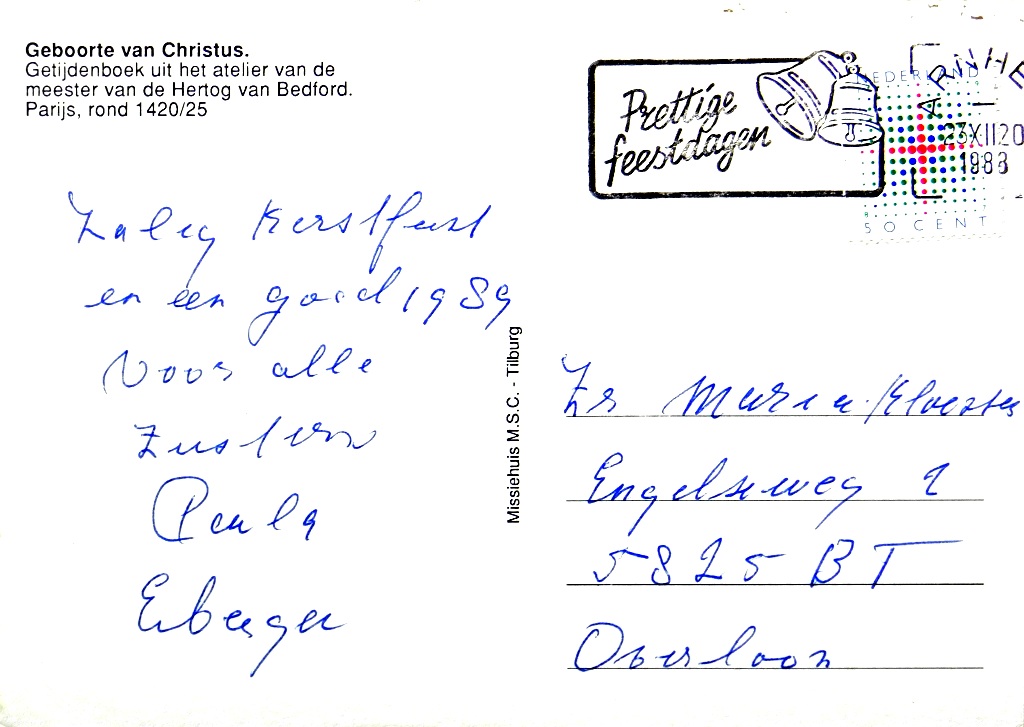 Geboorte van Christus.
Getijdenboek uit het atelier van de
meester van de Hertog van Bedford.
Parijs, rond 1420/25
Zalig Kerstfeest
en een goed 1989
Voor alle
Zusters
Paula
Missiehuis M.S.C. - Tilburg
Prettige
feestdagen
NEDERLAND
ARNHE
23XII20
1988
50 CENT
Zr Maria Klooster
Engelseweg
5825 BT
Overloon